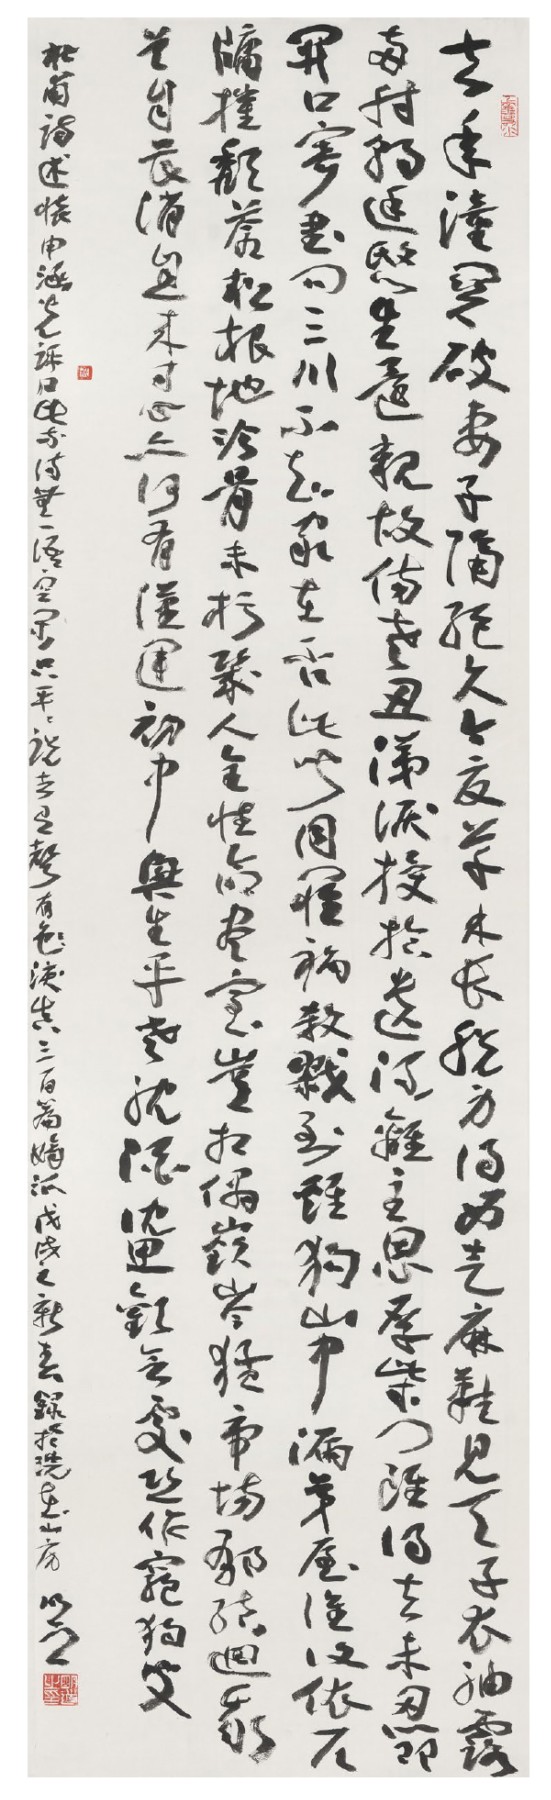 去年潼關破妻子隔絕久今夏草木長脫身得西走麻鞋見天子衣袖露
兩肘朝廷慜生還親故傷老醜涕淚授拾遺流離主恩厚柴門雖得去未忍即
開口寄書問三川不知家在否比聞同罹禍殺戮到雞狗山中漏茅屋誰復依戶
牖摧頹蒼松根地冷骨未朽幾人全性命盡室豈相偶嶔岑猛虎場鬱結迴我
首自畏消息來寸心亦何有漢運初中興生平老耽酒沈思歡會處恐作窮獨叟
杜甫詩述懷申涵光評曰此等詩無一語空閒只平平說去有聲有色淚真三百篇嫡派戊戌之新春錄於洗山房